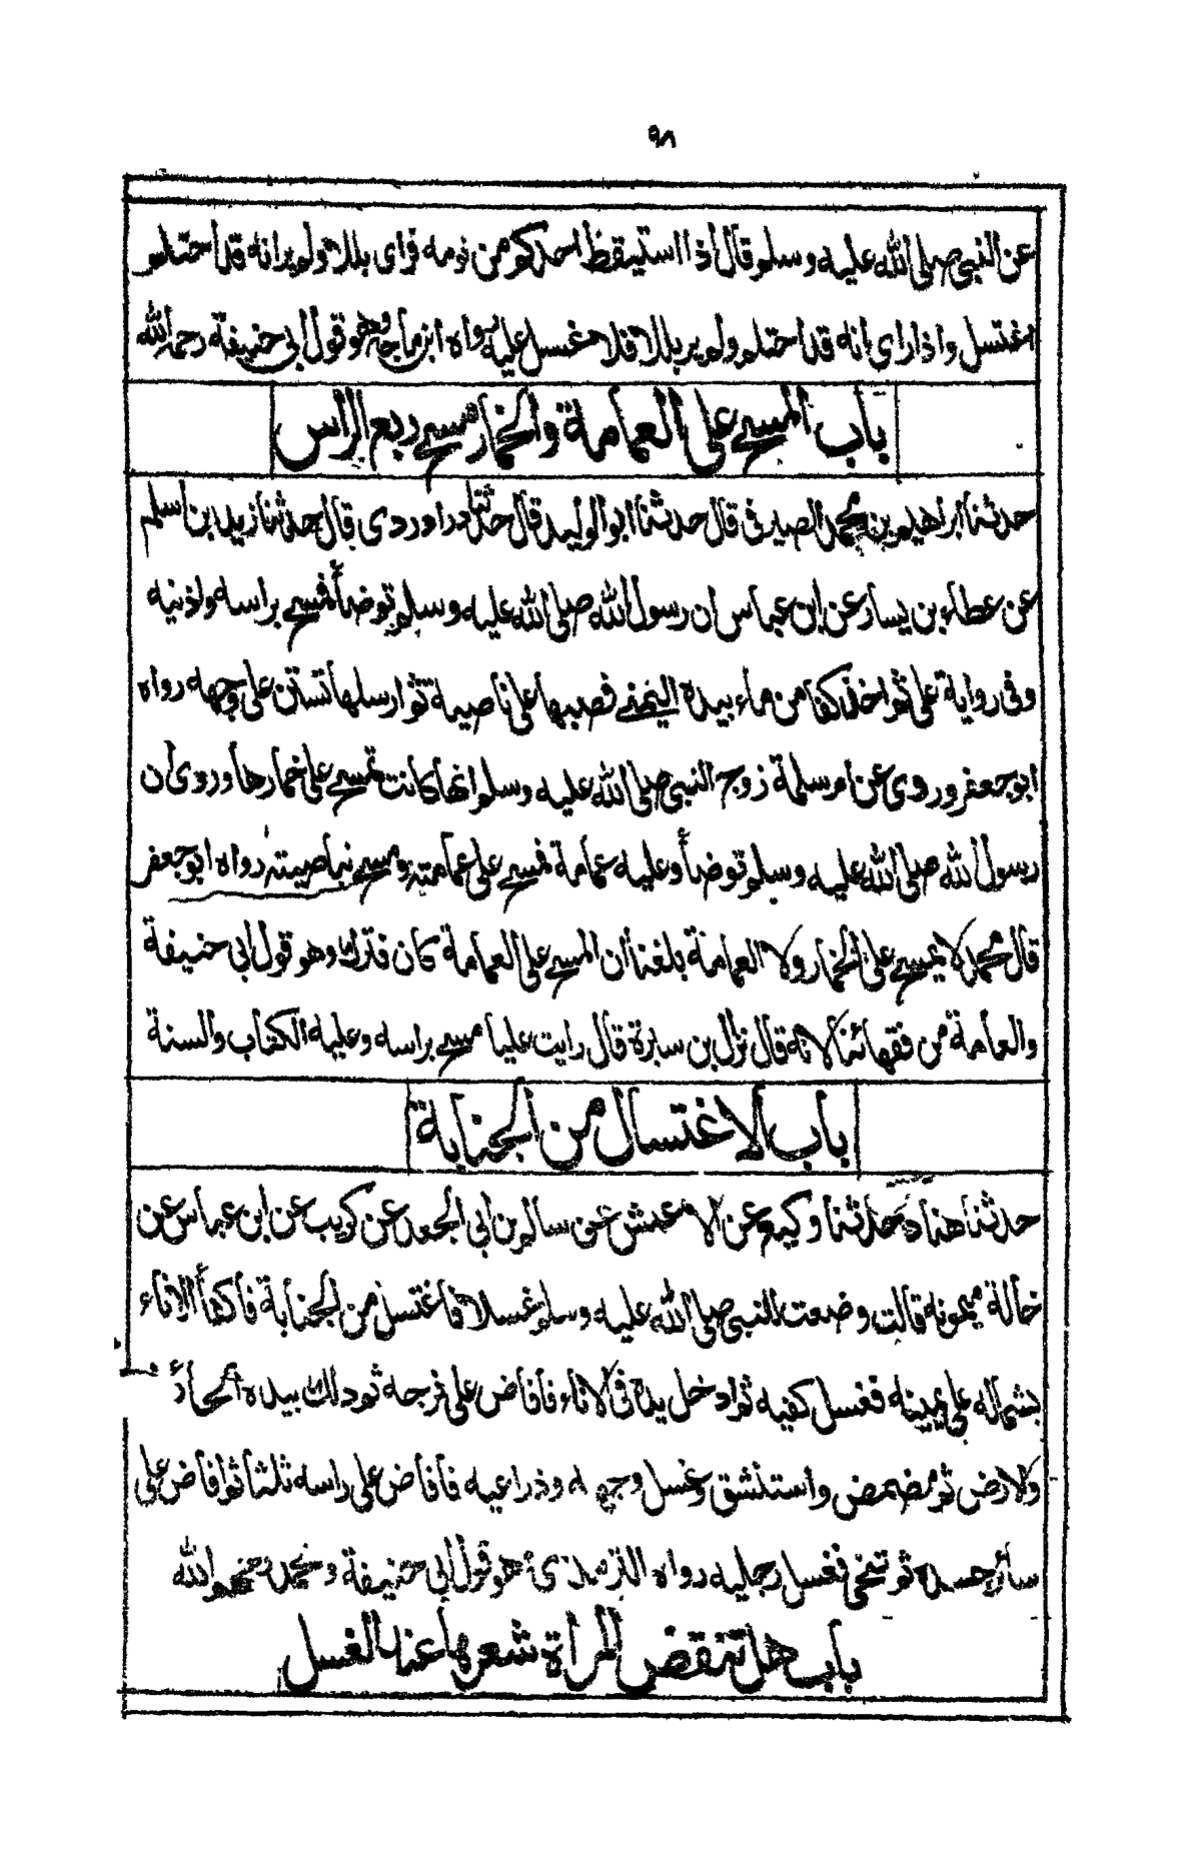 ٩٨
عن النبي صلى الله عليه وسلم قال اذا استيقظ احدكم من نومه فراى بللا ولم يرانه قد احتلم
اغتسل واذا راى انه قد احتلم ولم ير بللا فلا غسل عليه رواه ابن ماجه وهو قول ابي حنيفة رحمه الله
باب المسح على العمامة والخمار مسح ربع الراس
حدثنا ابراهيم بن محمد الصيرفى قال حدثنا ابو الوليد قال حدثنا دراوردى قال حدثنا زيد بن اسلم
عن عطاء بن يسار عن ابن عباس ان رسول الله صلى الله عليه وسلم توضأ فمسح براسه واذنيه
وفى رواية على ثم اخذ كفا من ماء بيده اليمنى فصبها على ناصية ثم ارسلها تستن على وجهه رواه
ابو جعفر وروى عن ام سلمة زوج النبي صلى الله عليه وسلم انها كانت تمسح على خمارها وروى ان
رسول الله صلى الله عليه وسلم توضأ وعليه عمامة فمسح على عمامته ومسح بناصيته رواه ابو جعفر
قال محمد لا يمسح على الخمار ولا العمامة بلغنا ان المسح على العمامة كان فترك وهو قول ابي حنيفة
والعامة من فقهائنا لانه قال نزال بن سبرة قال رايت عليا مسح براسه وعليه الكتاب والسنة
باب الاغتسال من الجنابة
حدثنا هناد حدثنا وكيع عن الاعمش عن سالم بن ابي الجعد عن كريب عن ابن عباس عن
خالة ميمونه قالت وضعت للنبي صلى الله عليه وسلم غسلا فاغتسل من الجنابة فاكفأ الاناء
بشماله على يمينه فغسل كفيه ثم ادخل يده فى الاناء فافاض على فرجه ثم دلك بيده الحائط
ولارض ثم مضمض واستنشق وغسل وجهه وذراعيه فافاض على راسه ثلثا ثم افاض على
سائر جسده ثم تنحى فغسل رجليه رواه الترمذى هو قول ابي حنيفة ومحمد رحمهم الله
باب هل تنقض المرأة شعرها عند الغسل